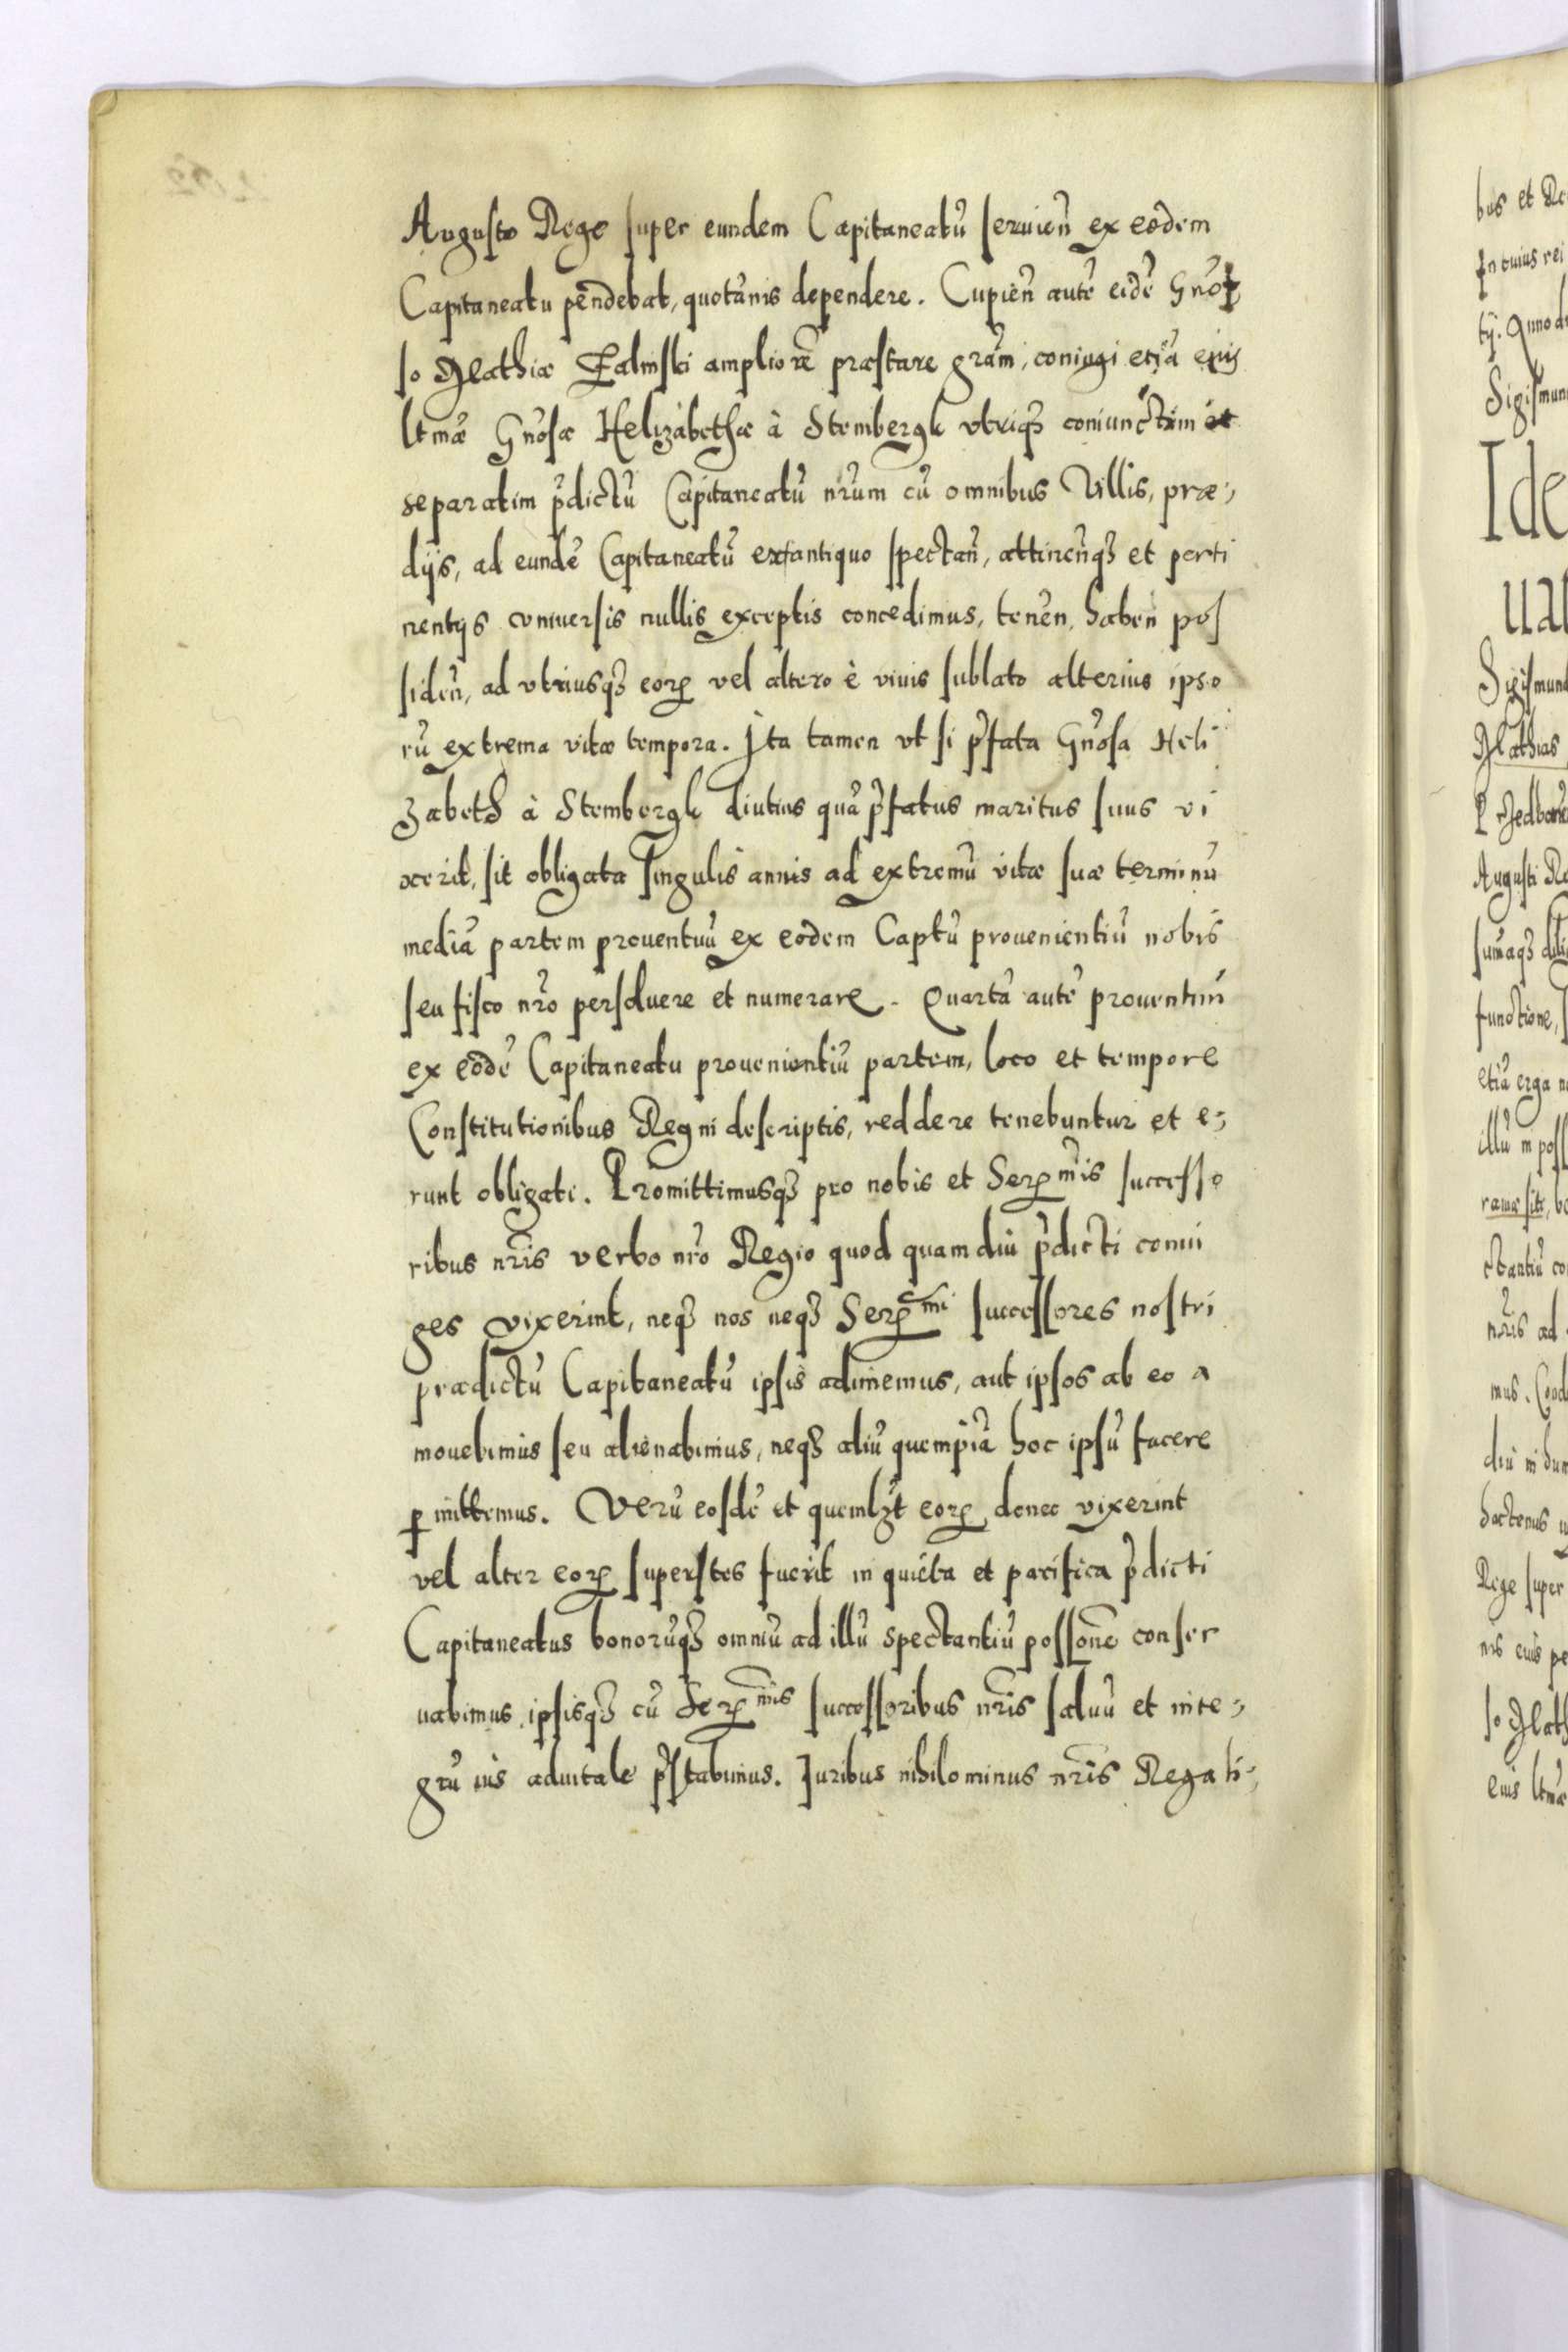 Augusto Rege super eundem Capitaneatū seruien̄ ex eodem
Capitaneatu pendebat, quotānis dependere. Cupien̄ autē eidē Gn̄o
so Mathiæ Zalinski ampliorē præstare grām, coniugi etiā eius
ltmæ Gn̄osæ Helizabethæ à Stembergk vtriqȝ coniunctim et
separatim p̄dictū Capitaneatū nr̄um cū omnibus Villis, præ⸗
dijs, ad eundē Capitaneatū ex antiquo spectan̄, attinen̄qȝ et perti
nentijs vniuersis nullis exceptis concedimus, tenen̄, haben̄ pos
siden̄, ad vtriusqȝ eoꝝ vel altero è viuis sublato alterius ipso
rū extrema vitæ tempora. Ita tamen vt si p̄fata Gn̄osa Heli
zabeth à Stembergk diutius quā p̄fatus maritus suus vi
xerit, sit obligata singulis annis ad extremū vitæ suæ terminū
mediā partem prouentuū ex eodem Captū prouenientiū nobis
seu fisco nr̄o persoluere et numerare. Quartā autē prouentuū
ex eodē Capitaneatu prouenientiū partem, loco et tempore
Constitutionibus Regni descriptis, reddere tenebuntur et e⸗
runt obligati. Promittimusqȝ pro nobis et Serꝝmis successo
ribus nr̄is verbo nr̄o Regio quod quamdiu p̄dicti coniu
ges vixerint, neqȝ nos neqȝ Serꝝmi successores nostri
prædictū Capitaneatū ipsis adimemus, aut ipsos ab eo a
mouebimus seu alienabimus, neqȝ aliū quempiā hoc ipsū facere
ꝑmittemus. Verū eosdē et quemlȝt eoꝝ donec vixerint
vel alter eoꝝ superstes fuerit in quieta et pacifica p̄dicti
Capitaneatus bonorūqȝ omniū ad illū spectantiū possone conser
uabimus, ipsisqȝ cū Serꝝmis successoribus nr̄is saluū et inte⸗
grū ius aduitale p̄stabimus. Iuribus nihilominus nr̄is Regali⸗